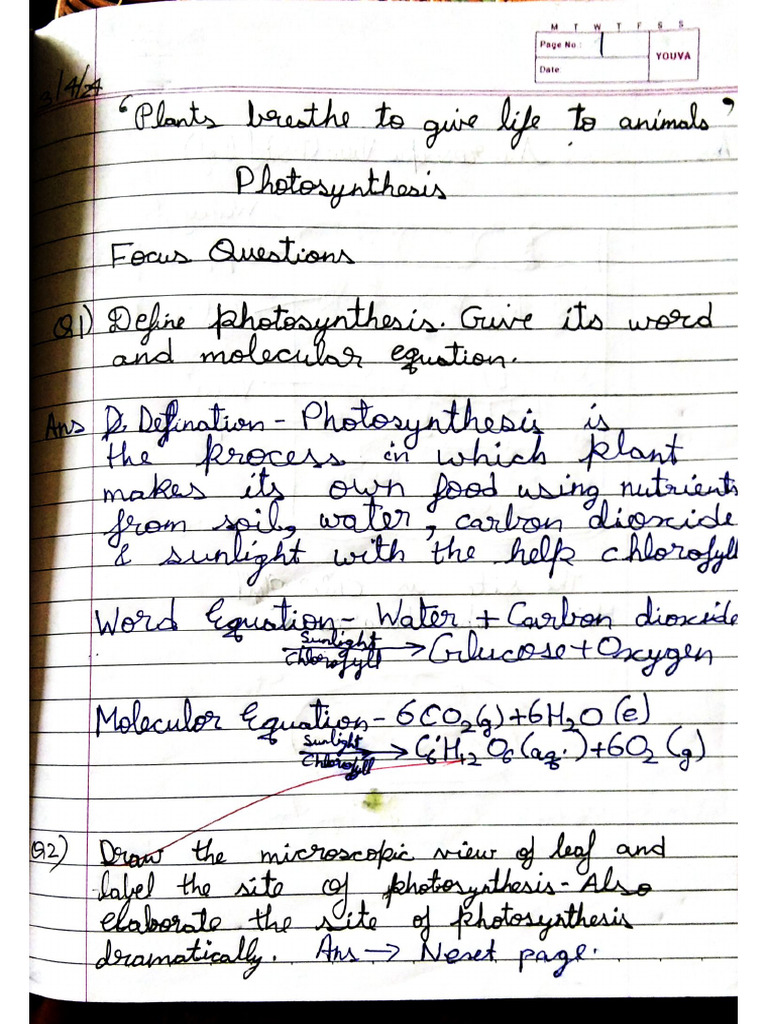 M T W T F S S
Page No.: 1
YOUVA
Date:
3/4/24
"Plants breathe to give life to animals"
Photosynthesis
Focus Questions
Q1) Define photosynthesis. Give its word
and molecular equation.
Ans D. Defination - Photosynthesis is
the process in which plant
makes its own food using nutrients
from soil, water, carbon dioxide
& sunlight with the help chlorofyll
Word Equation - Water + Carbon dioxide
Sunlight
Chlorofyll → Glucose + Oxygen
Moleculor Equation - 6CO2(g)+6H2O(e)
Sunlight
Chlorofyll → C6H12O6(aq.)+6O2(g)
Q2) Draw the microscopic view of leaf and
label the site of photosynthesis - Also
elaborate the site of photosynthesis
dramatically. Ans → Next page.